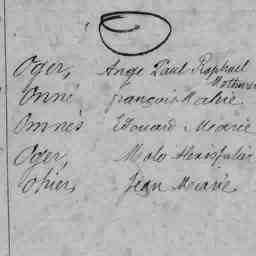 O
Oger, Ange Paul Raphael
Mathurin
Onné François Marie
Omnès Edouard Marie
Oger, Malo Alexis Julien
Othier, Jean Marie